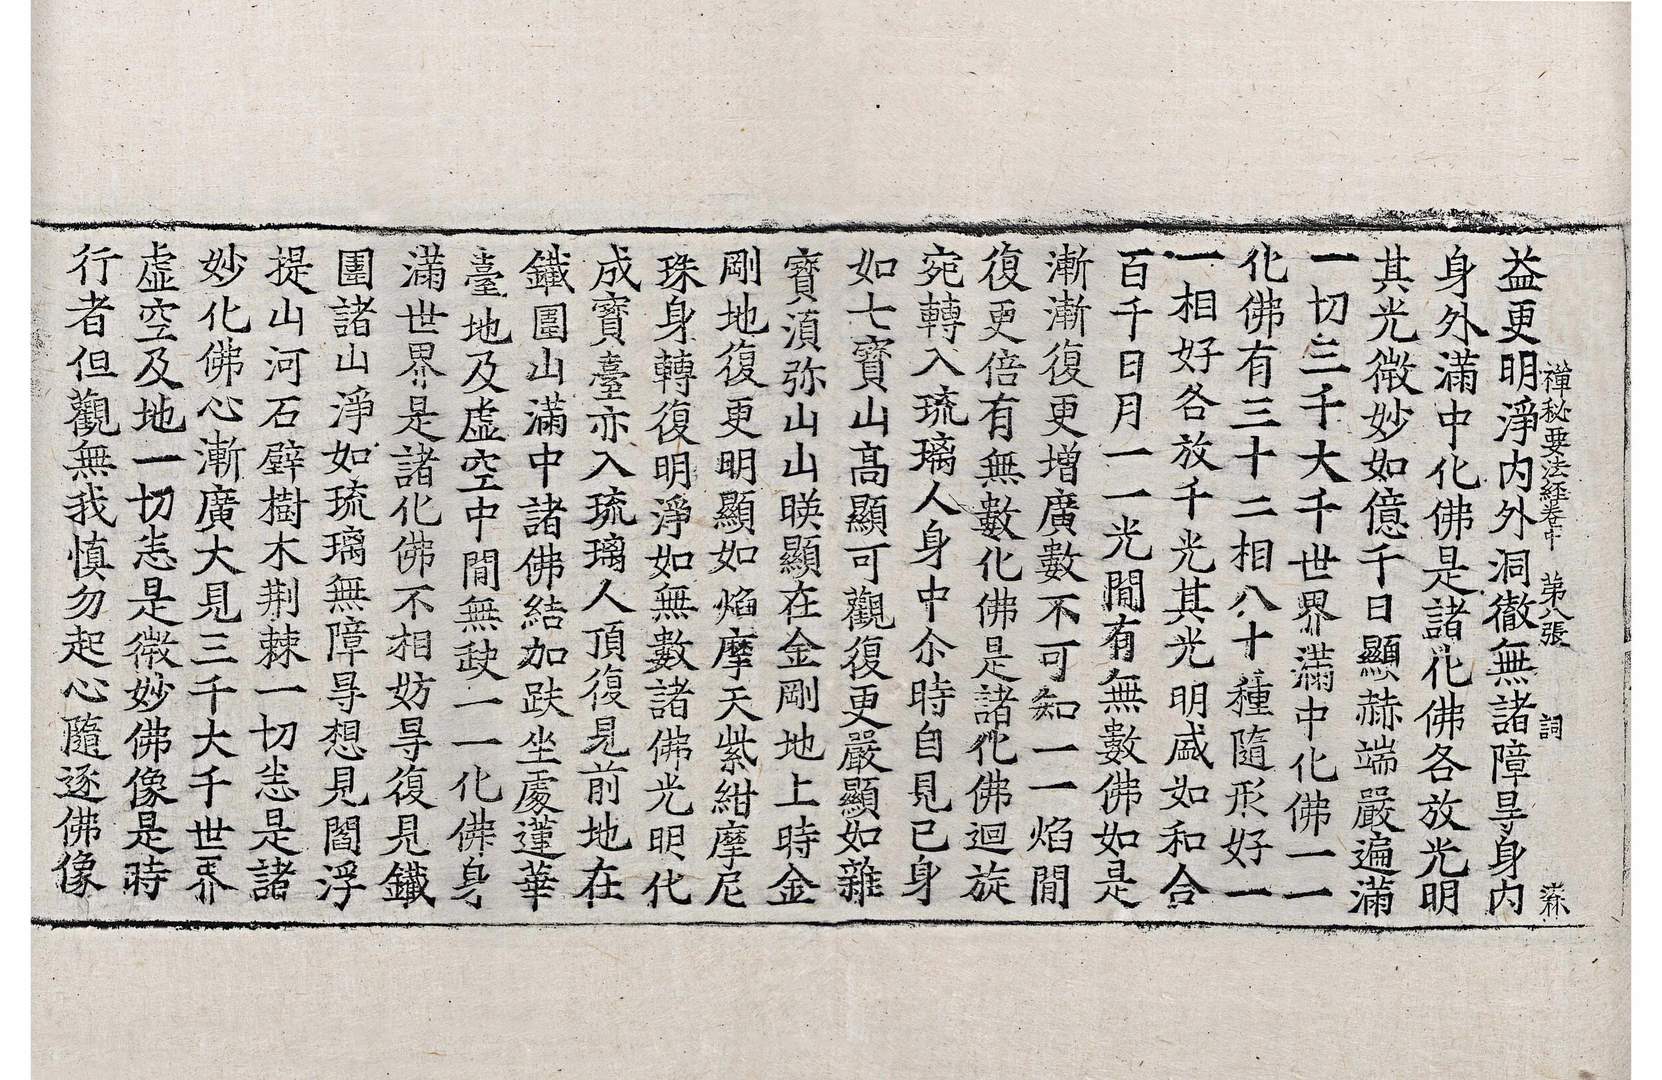 益更明淨内外洞徹無諸障㝵身内
禪秘要法經卷中　第八張　詞
身外滿中化佛是諸化佛各放光明
其光微妙如億千日顯赫端嚴遍滿
一切三千大千世界滿中化佛一一
化佛有三十二相八十種隨形好一
一相好各放千光其光明盛如和合
百千日月一一光閒有無數佛如是
漸漸復更增廣數不可知一一焰閒
復更倍有無數化佛是諸化佛迴旋
宛轉入琉璃人身中尒時自見已身
如七寶山高顯可觀復更嚴顯如雜
寶湏弥山山暎顯在金剛地上時金
剛地復更明顯如焰摩天紫紺摩尼
珠身轉復明淨如無數諸佛光明代
成寶臺亦入琉璃人頂復見前地在
鐵圍山滿中諸佛結加趺坐處蓮華
臺地及虛空中閒無𡙇一一化佛身
滿世界是諸化佛不相妨㝵復見鐵
圍諸山淨如琉璃無障㝵想見閻浮
提山河石壁樹木荆棘一切恙是諸
妙化佛心漸廣大見三千大千世界
虛空及地一切恙是微妙佛像是時
行者但觀無我慎勿起心隨逐佛像